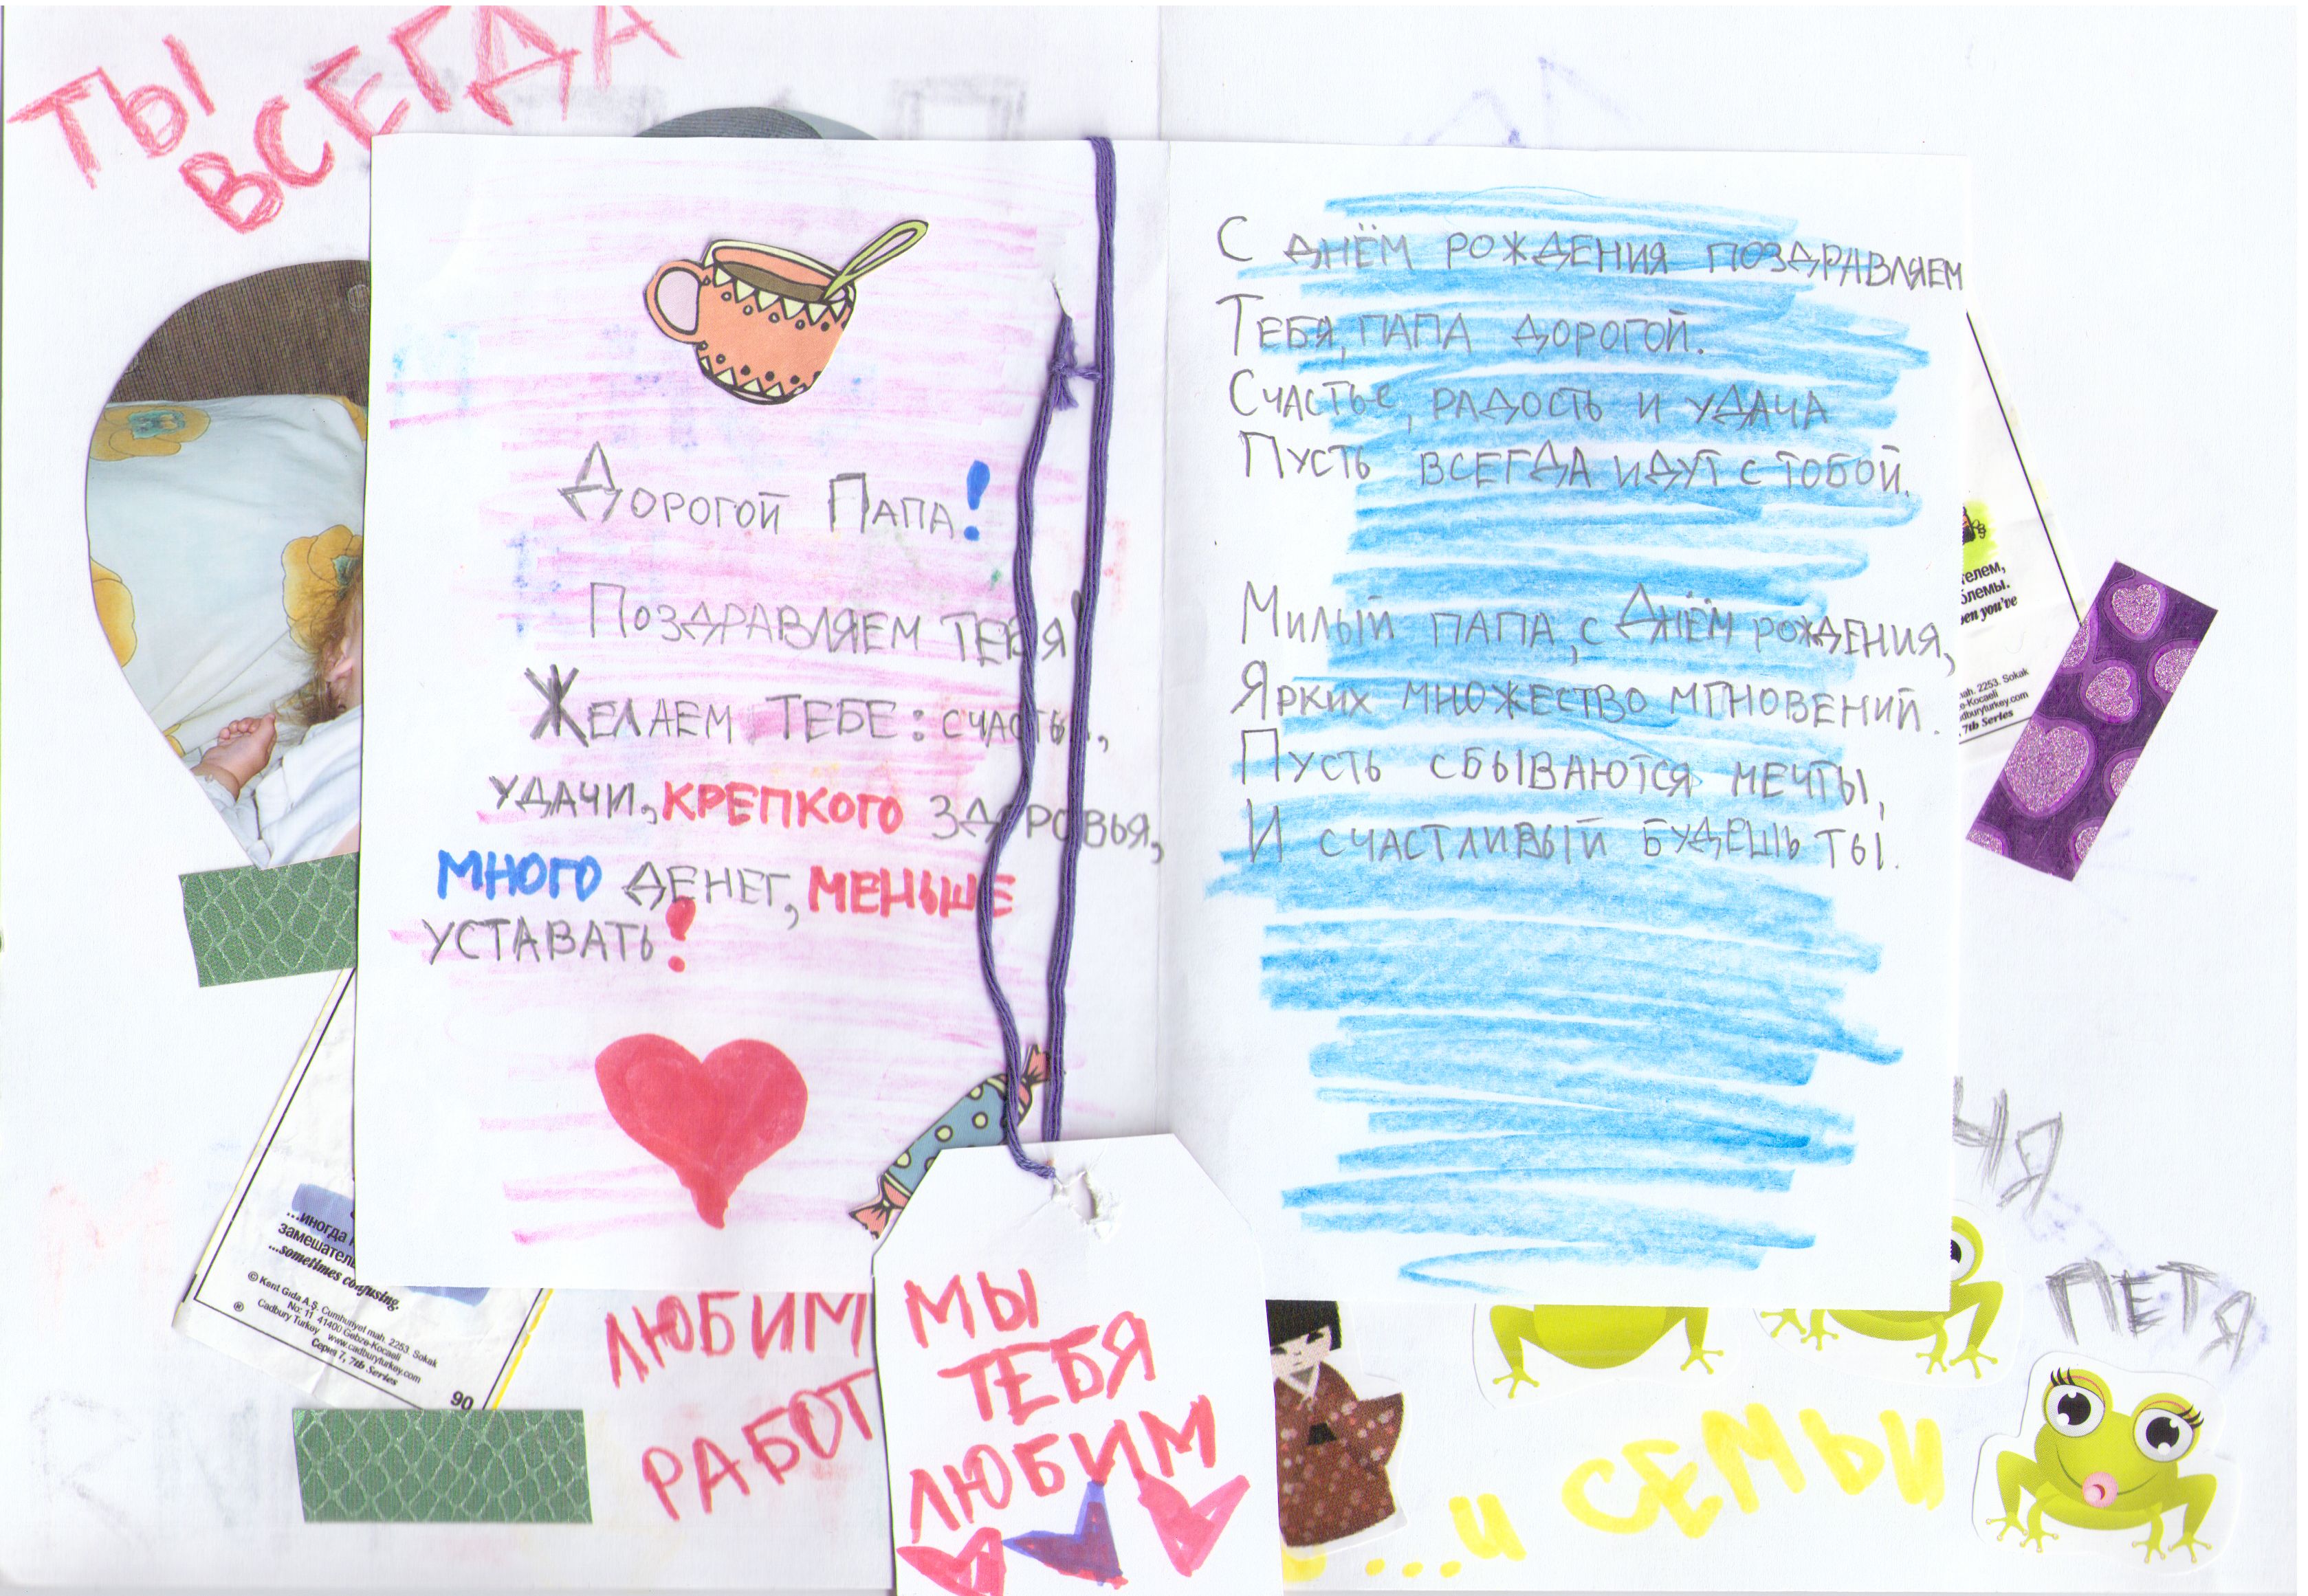 ТЫ
ВСЕГДА
Дорогой Папа!
Поздравляем тебя!
Желаем тебе: счастья,
удачи, крепкого здоровья,
много денег, меньше
уставать!
С днём рождения поздравляем
Тебя, папа дорогой.
Счастье, радость и удача
Пусть всегда идут с тобой.
Милый папа, с Днём рождения,
Ярких множество мгновений.
Пусть сбываются мечты,
И счастливый будешь ты.
телем,
блемы.
en you've
mah. 2253. Sokak
e-Kocaeli
dburyturkey.com
, 7th Series
...иногда
замешатель
...sometimes confusing.
© Kent Gıda A.Ş. Cumhuriyet mah. 2253. Sokak
No: 11 41400 Gebze-Kocaeli
Cadbury Turkey www.cadburyturkey.com
Серия 7, 7th Series
90
®
ЛЮБИМ
РАБОТ
МЫ
ТЕБЯ
ЛЮБИМ
ЧЯ
ПЕТЯ
...и СЕМЬИ